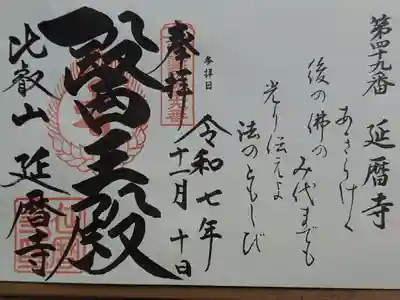 第四十九番 延暦寺
あきらけく
後の佛の
み代までも
光り伝えよ
法のともしび
参拝日
令和七年
十一月十日
奉拝
醫王殿
比叡山 延暦寺